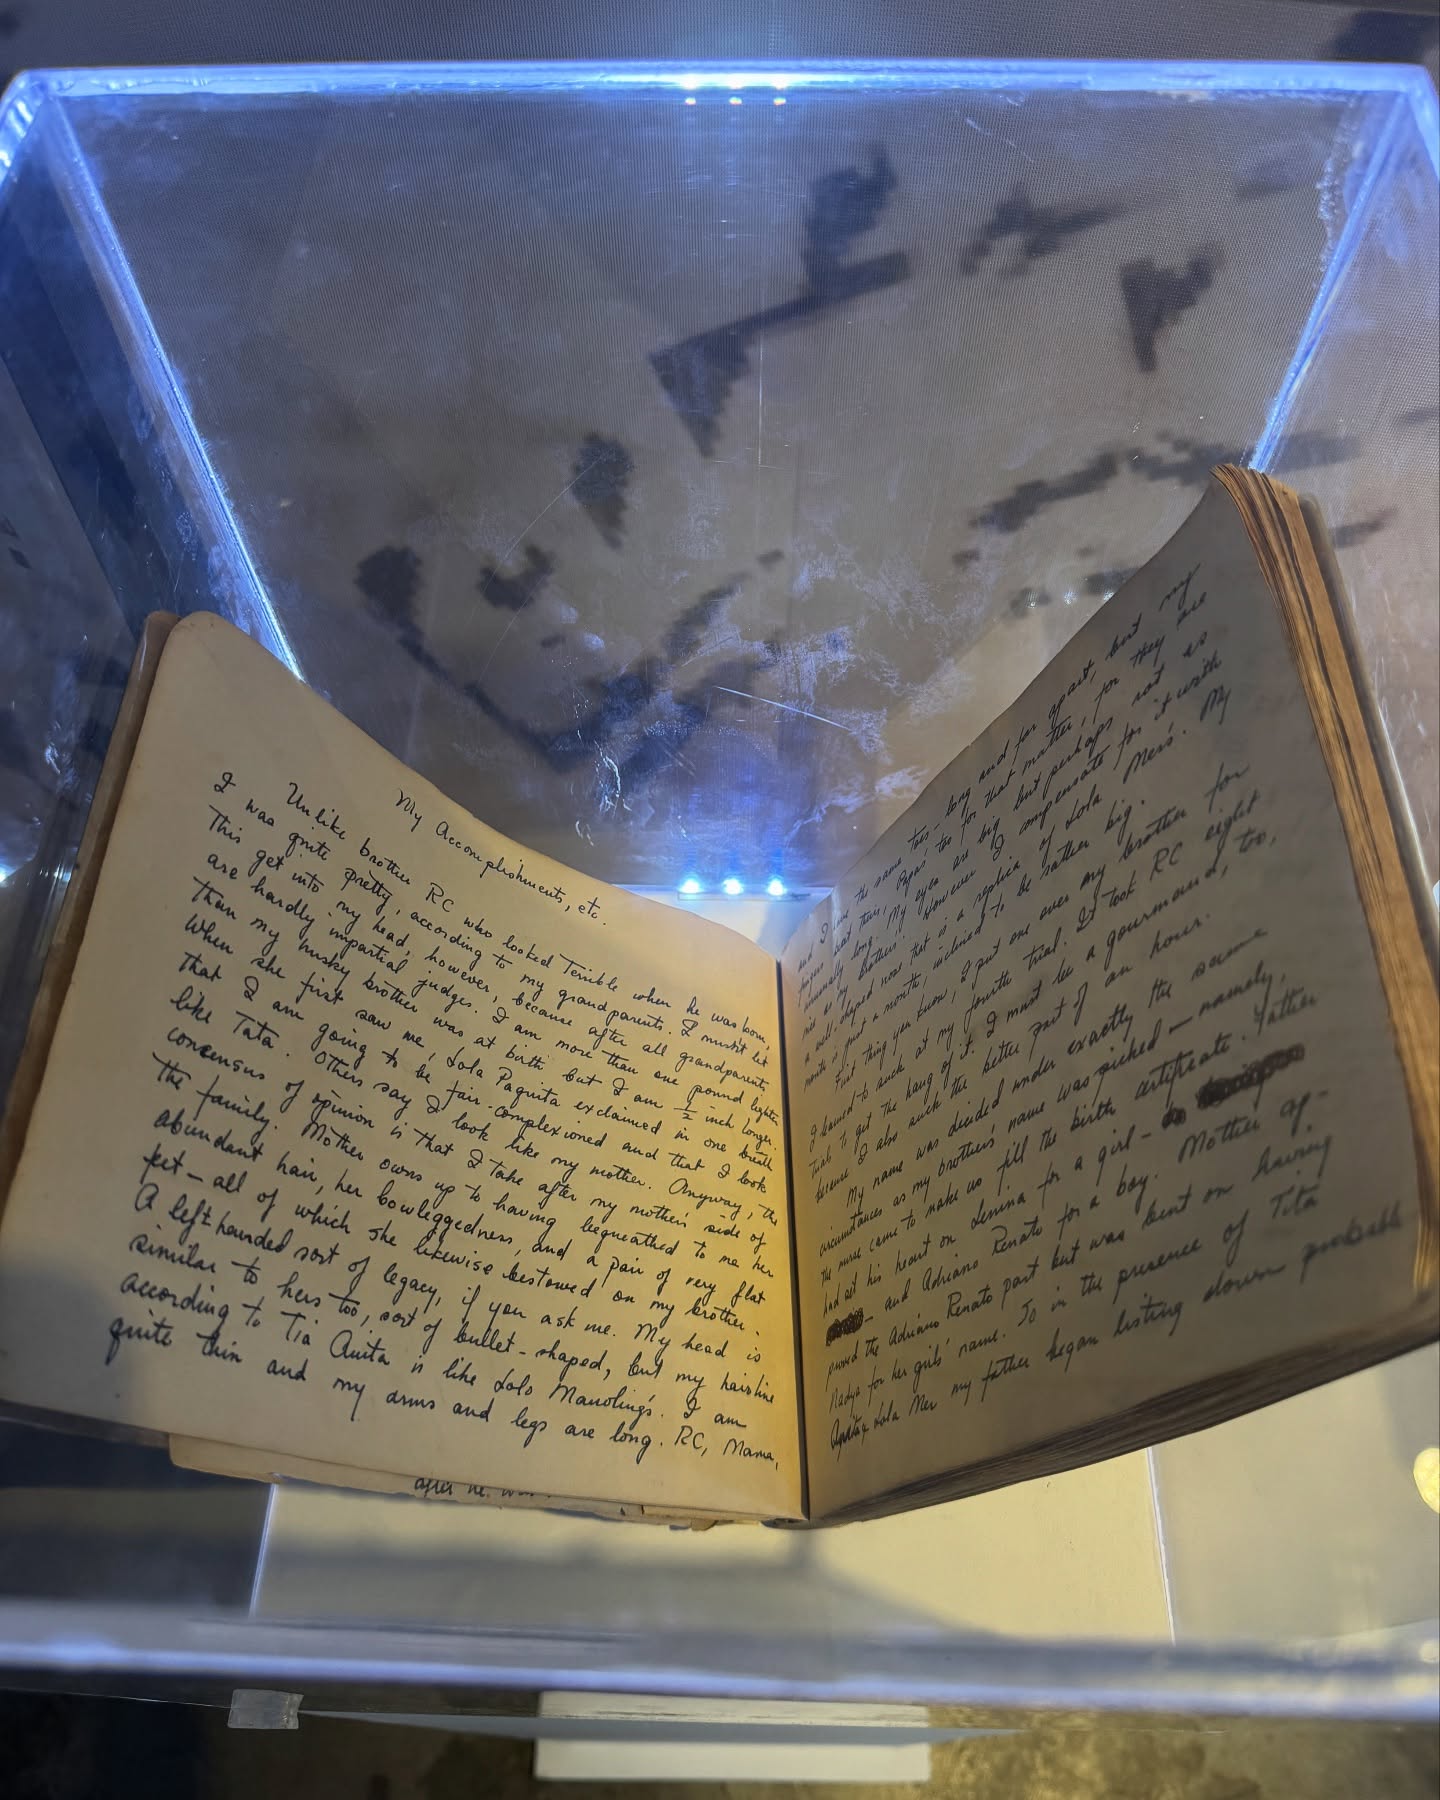 My Accomplishments, etc.
Unlike brother RC who looked terrible when he was born,
I was quite pretty, according to my grandparents. I mustn't let
this get into my head, however, because after all grandparents
are hardly impartial judges. I am more than one pound lighter
than my husky brother was at birth but I am ½ inch longer.
When she first saw me, Lola Paquita exclaimed in one breath
that I am going to be fair-complexioned and that I look
like Tata. Others say I look like my mother. Anyway, the
consensus of opinion is that I take after my mother's side of
the family. Mother owns up to having bequeathed to me her
abundant hair, her bowleggedness, and a pair of very flat
feet — all of which she likewise bestowed on my brother.
A left-handed sort of legacy, if you ask me. My head is
similar to hers too, sort of bullet-shaped, but my hairline
according to Tia Anita is like Lolo Manoling's. I am
quite thin and my arms and legs are long. RC, Mama,
after he was
and I have the same toes - long and far apart, but my
fingers and toes, Papa's too for that matter, for they are
unusually long. My eyes are big but perhaps not as
as my brother's. However I compensate for it with
a well-shaped nose that is a replica of Lola Mer's. My
mouth is just a mouth, inclined to be rather big.
First thing you know, I put one over my brother for
I learned to suck at my fourth trial. It took RC eight
trials to get the hang of it. I must be a gourmand, too,
because I also suck the better part of an hour.
My name was decided under exactly the same
circumstances as my brother's name was picked — namely,
the nurse came to make us fill the birth certificate. Father
had set his heart on Lenina for a girl -
- and Adriano Renato for a boy. Mother ap-
proved the Adriano Renato part but was bent on having
Nadya for her girls' name. So in the presence of Tita
Lola Mer my father began listing down probable